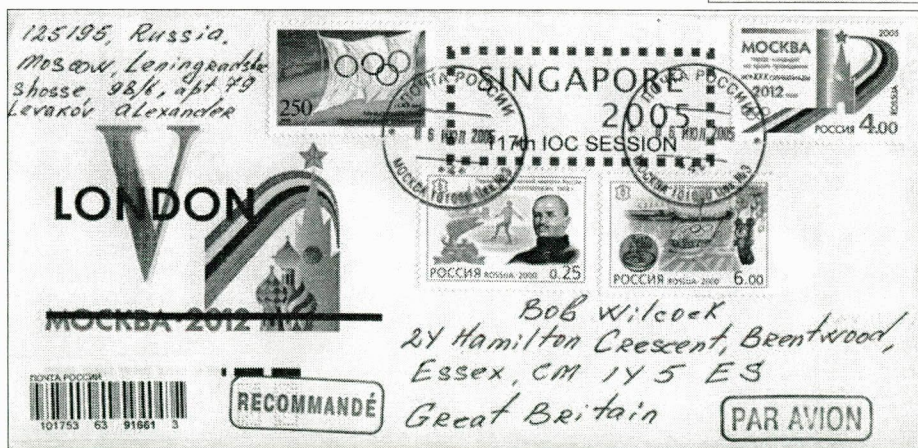 125195, Russia.
Moscow, Leningradskoe
shosse, 98/6, apt 79
Levakov Alexander
250
SINGAPORE
2005
117th IOC SESSION
ПОЧТА РОССИИ
6 ИЮЛ 2005
МОСКВА
ПОЧТА РОССИИ
6 ИЮЛ 2005
МОСКВА
МОСКВА
2012
2005
РОССИЯ 4.00
ROSSIA
V
LONDON
МОСКВА·2012
РОССИЯ ROSSIA·2000 0.25
РОССИЯ ROSSIA·2000 6.00
Bob Wilcock
24 Hamilton Crescent, Brentwood,
Essex, CM 1Y 5 ES
Great Britain
ПОЧТА РОССИИ
101753 63 91661 3
RECOMMANDÉ
PAR AVION